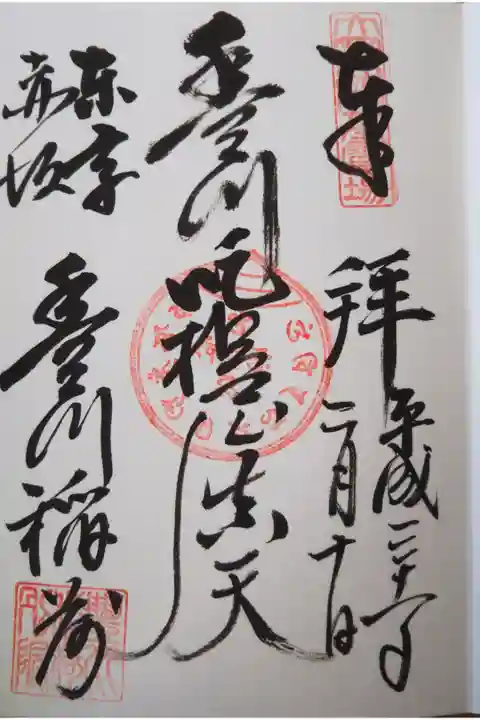 奉拝
平成三十年
二月十日
豊川吒枳尼真天
東京
赤坂
豊川稲荷